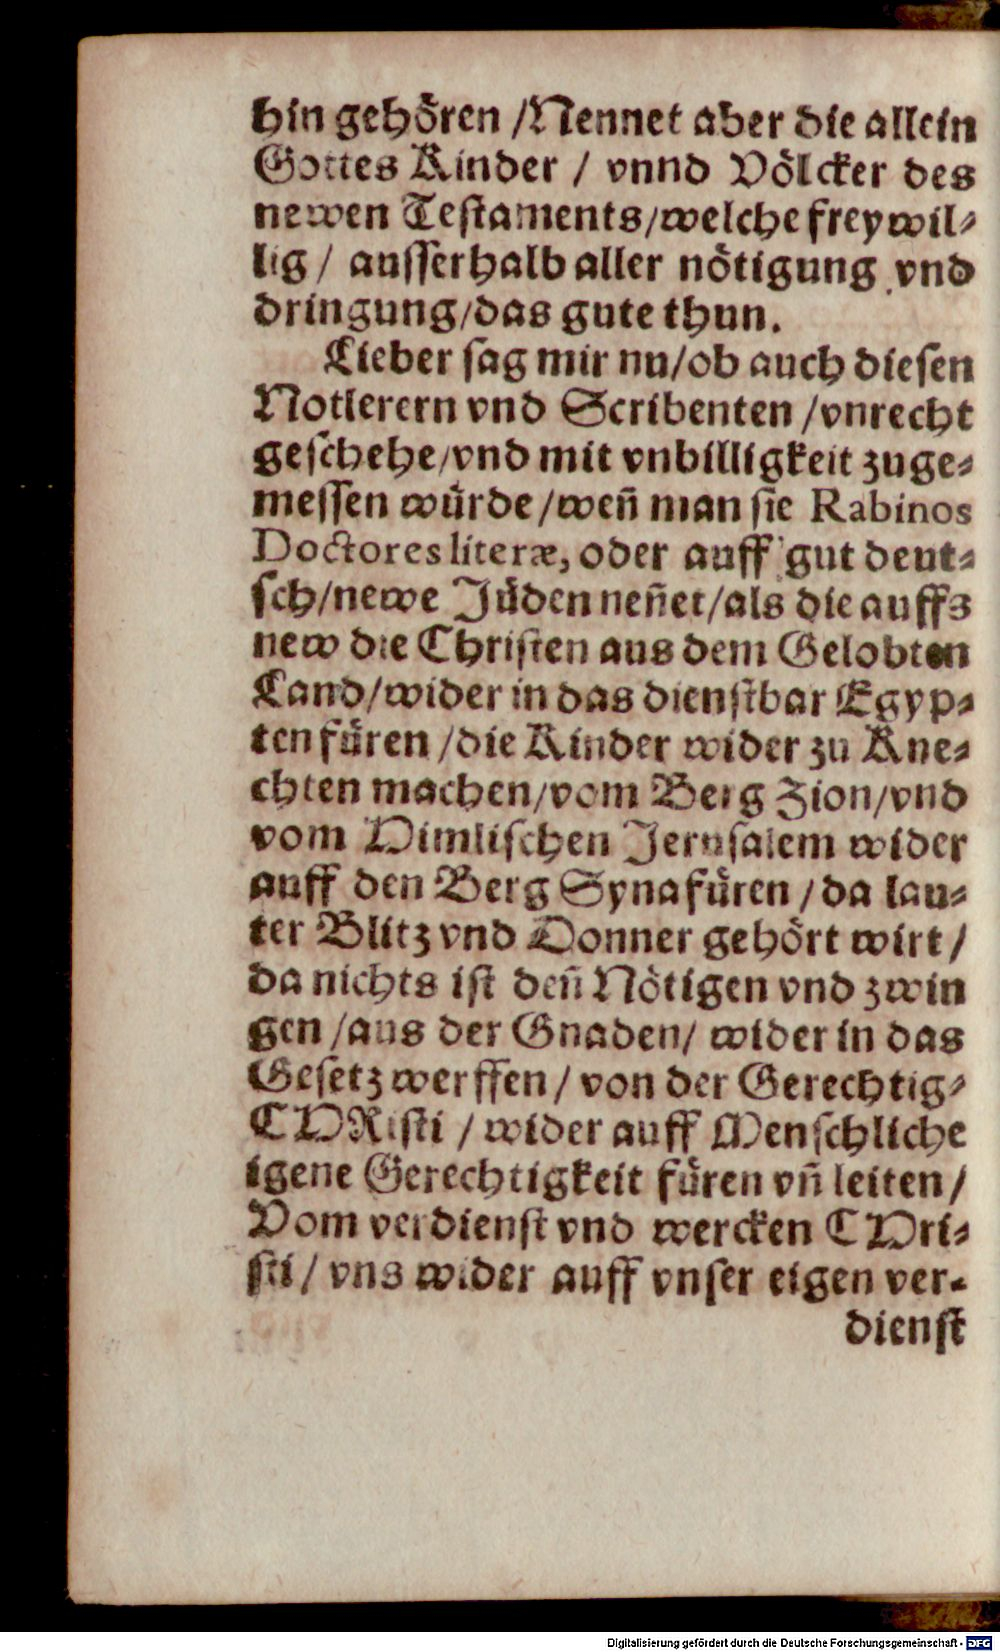 hin gehören /Nennet aber die allein
Gottes Kinder / vnnd Völcker des
newen Testaments/welche freywil⸗
lig / ausserhalb aller nötigung vnd
dringung/das gute thun.
Lieber sag mir nu/ob auch diesen
Notlerern vnd Scribenten /vnrecht
geschehe/vnd mit vnbilligkeit zuge⸗
messen würde/weñ man sie Rabinos
Doctores literæ, oder auff gut deut⸗
sch/newe Jüden neñet/als die auffs
new die Christen aus dem Gelobten
Land/wider in das dienstbar Egyp⸗
ten füren /die Kinder wider zu Kne⸗
chten machen/vom Berg Zion/vnd
vom Himlischen Jerusalem wider
auff den Berg Syna füren /da lau⸗
ter Blitz vnd Donner gehört wirt /
da nichts ist deñ Nötigen vnd zwin
gen /aus der Gnaden/ wider in das
Gesetz werffen / von der Gerechtig⸗
CHRisti / wider auff Menschliche
igene Gerechtigkeit füren vñ leiten /
Vom verdienst vnd wercken CHri⸗
sti / vns wider auff vnser eigen ver⸗
dienst
Digitalisierung gefördert durch die Deutsche Forschungsgemeinschaft - DFG